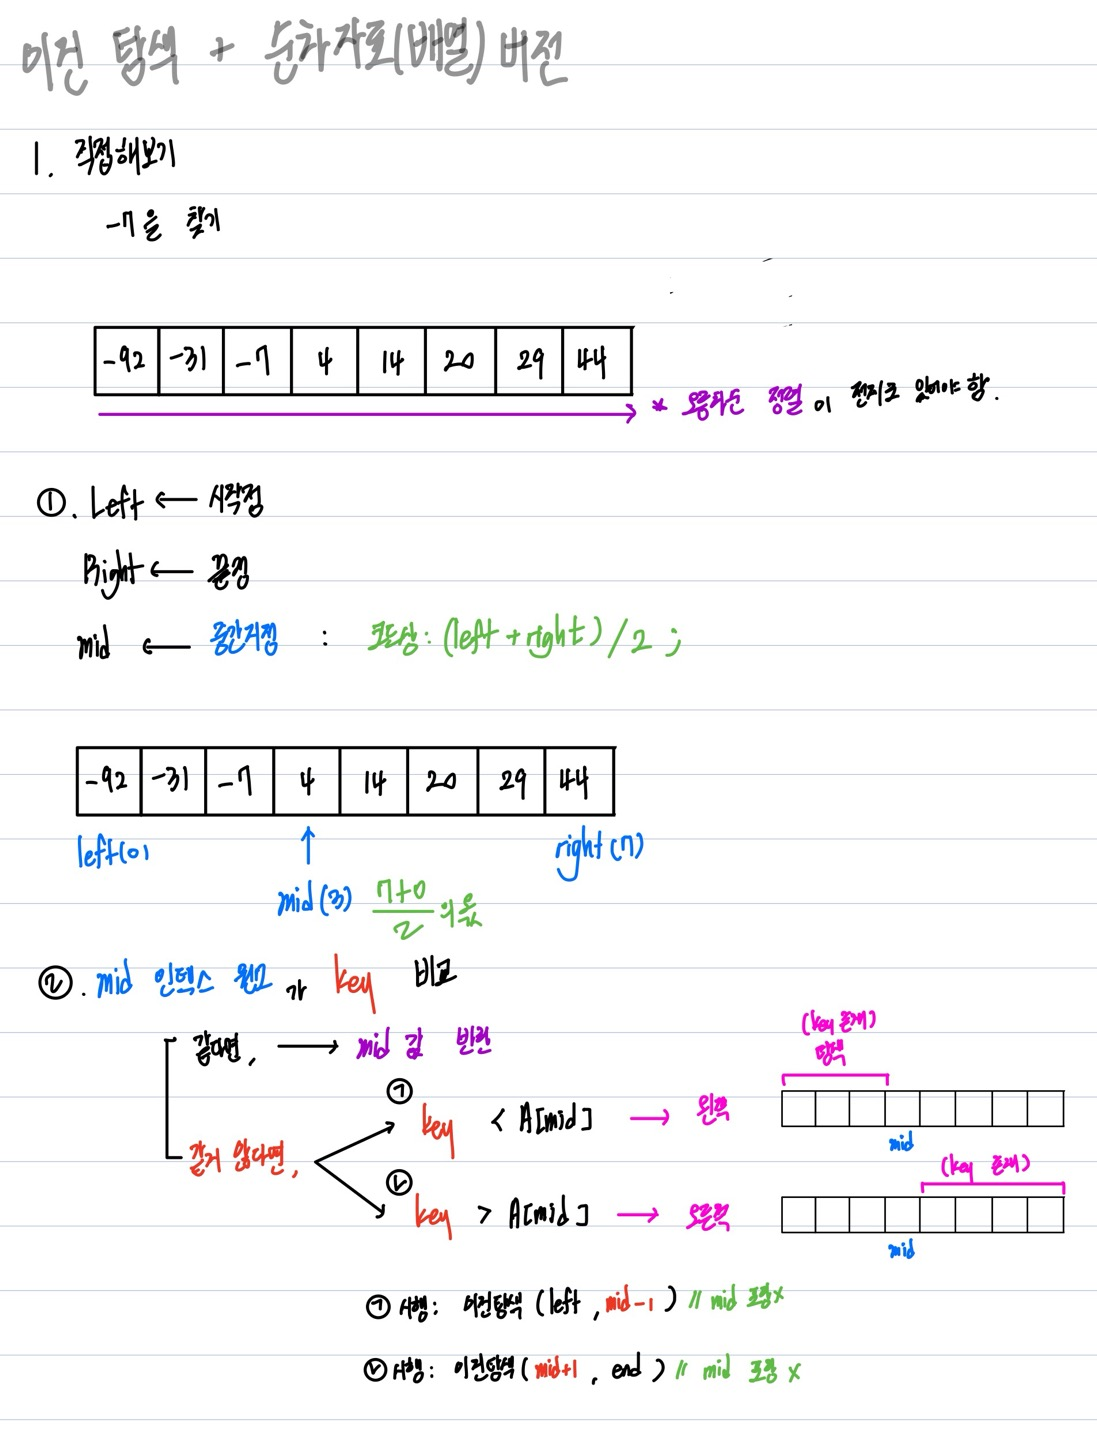 이진 탐색 + 순차자료(배열) 버전
1. 직접해보기
-7을 찾기
-92 -31 -7 4 14 20 29 44
* 오름차순 정렬이 전제로 있어야 함.
①. Left ← 시작점
Right ← 끝점
mid ← 중간지점 : 코드상: (left + right) / 2 ;
-92 -31 -7 4 14 20 29 44
left(0) right(7)
mid(3) 7+0/2 의 몫
②. mid 인덱스 원소 가 key 비교
같다면, → mid 값 반환
(key 존재)
탐색
㉠ key < A[mid] → 왼쪽
mid
같지 않다면,
(key 존재)
㉡ key > A[mid] → 오른쪽
mid
㉠ 시행: 이진탐색 (left, mid-1) // mid 포함x
㉡ 시행: 이진탐색 (mid+1, end) // mid 포함 x